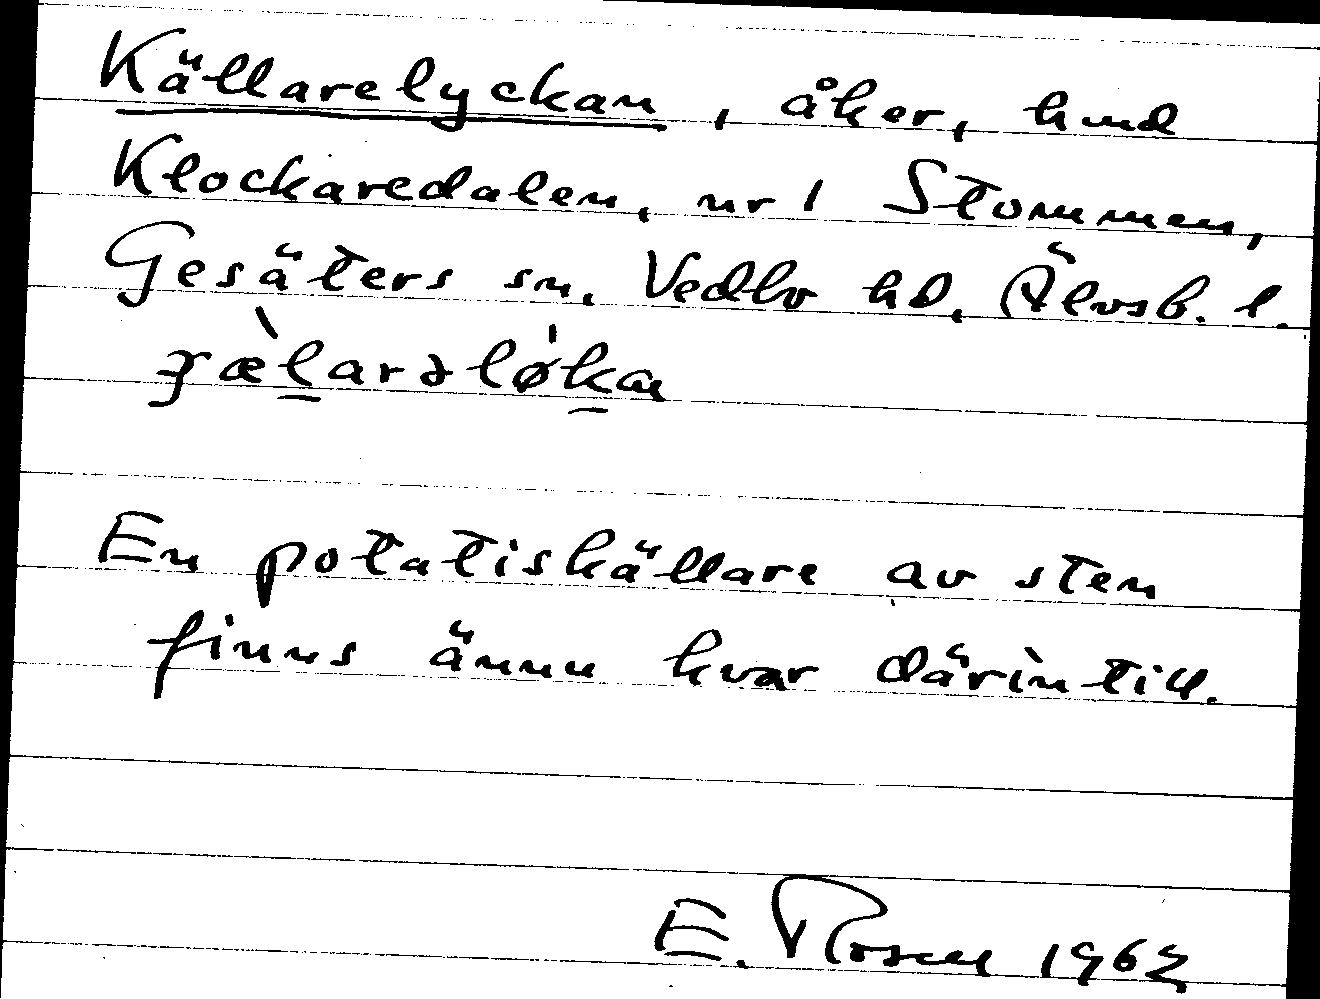 Källarelyckan, åker, hmd
Klockaredalen, nr 1 Stommen,
Gesäters sn. Vedbo hd, Älvsb. l.
En potatiskällare av sten
finns ännu kvar därintill.
E. Rosell 1962